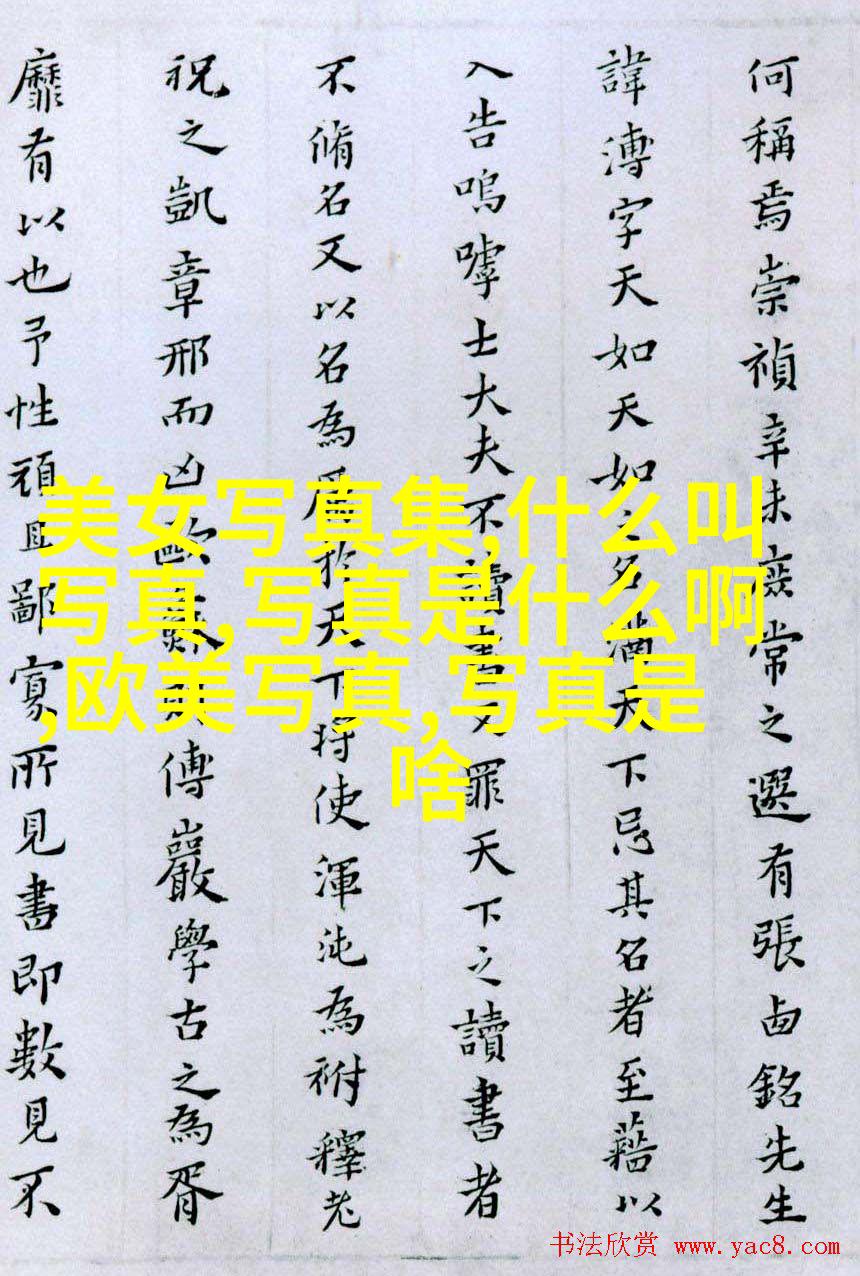 何稱焉崇禎辛未庶常之選有張卣銘先生
諱溥字天如天如之名滿天下忌其名者至藉以
入告嗚嘑士大夫不讀書又罪天下之讀書者
不脩名又以名為於天下将使渾沌為祔釋老
祝之凱章邢而凶歐傅巖學古之為胥
靡有以也予性頑且鄙寡所見書即數見不
美女写真集,什么叫
写真,写真是什么啊
,欧美写真,写真是
啥
书法欣赏 www.yac8.com